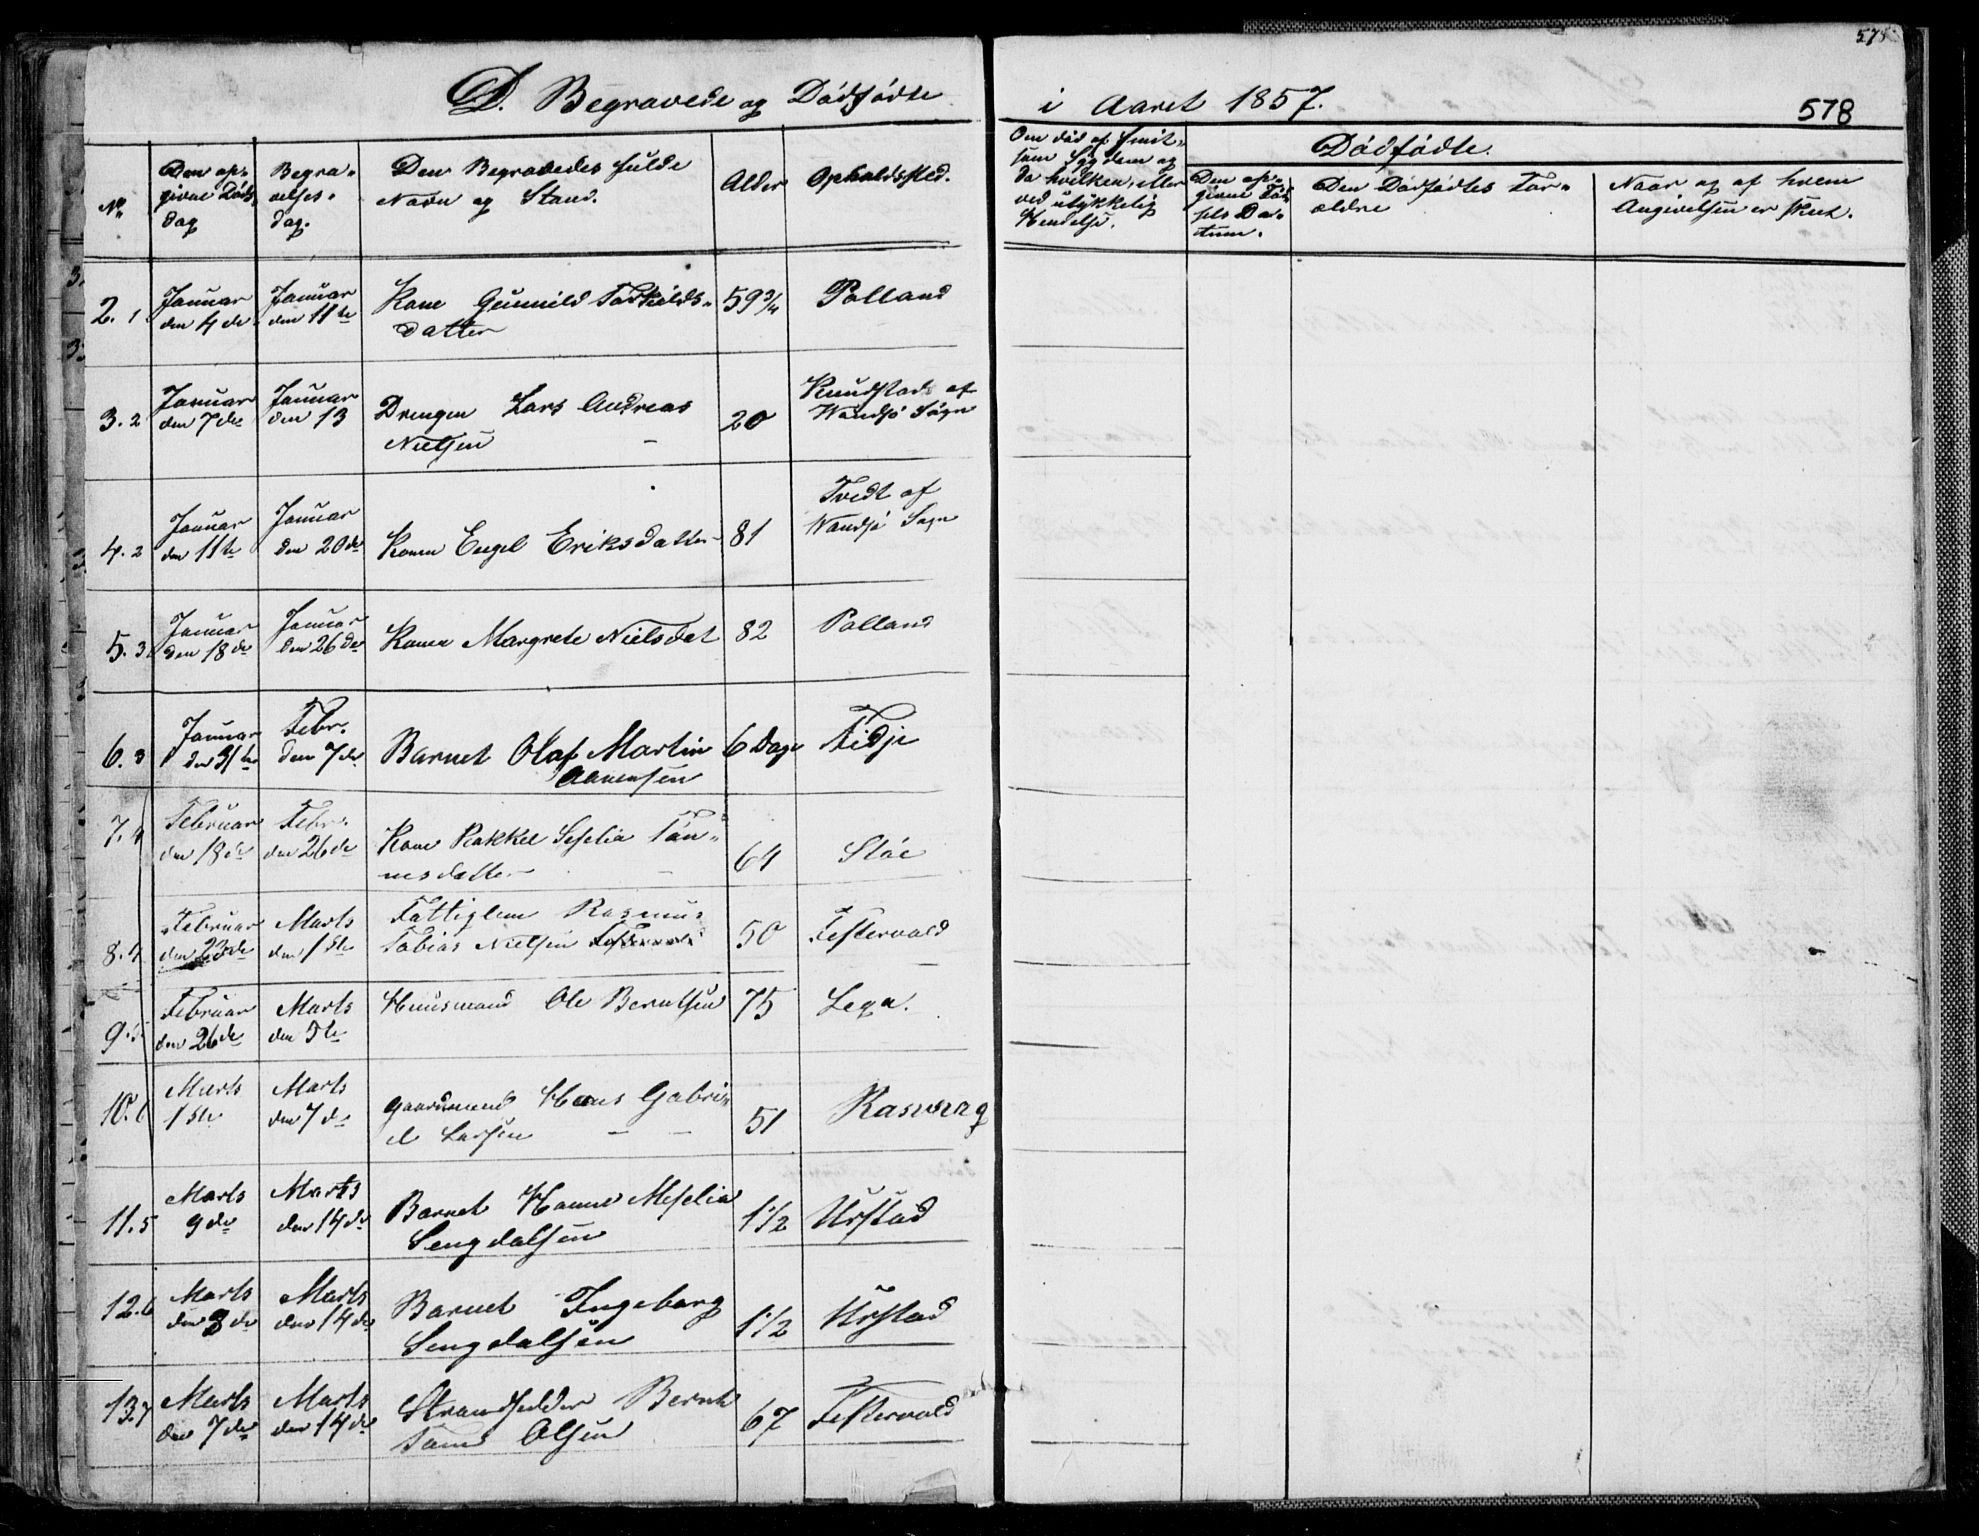 575
D. Begravede og Dødfødte
i Aaret 1857.
578
No
Den op-
givne Døds
dag
Begra-
velses-
dag.
Den Begravedes fulde
Navn og Stand.
Alder
Opholdssted.
Om død af smit-
som Sygdom og
da hvilken, eller
ved ulykkelig
Hendelse.
Dødfødte.
Den op-
givne Fød-
sels Da-
tum.
Den Dødfødtes For-
ældre
Naar og af hvem
Angivelsen er skeet.
2. 1
Januar
den 4de
Januar
den 11te
Kone Gunnild Torkilds-
datter
59 3/4
Palland
3. 2
Januar
den 7de
Januar
den 13
Drengen Lars Andreas
Nielsen
20
Knudstad af
Wandsø Sogn
4. 2
Januar
den 11te
Januar
den 20de
Konen Engel Eriksdatter
81
Tvedt af
Wandsø Sogn
5. 3
Januar
den 18de
Januar
den 26de
Konen Margrete Nielsdat
82
Palland
6. 3
Januar
den 31te
Febr.
den 7de
Barnet Olaf Martin
Aanensen
6 Dage
Fidje
7. 4
Februar
den 18de
Febr.
den 26de
Kone Rakkel Seselia Tøn-
nesdatter
64
Støe
8. 4
Februar
den 23de
Marts
den 1ste
Fattiglem Rasmus
Tobias Nielsen Festervold
50
Festervold
9. 5
Februar
den 26de
Marts
den 5te
Huusmand Ole Berntsen
75
Lega.
10. 6
Marts
1ste
Marts
den 7de
Gaardmand Hans Gabri-
el Larsen
51
Rasvaag
11. 5
Marts
9de
Marts
den 14de
Barnet Hanne Meselia
Sengdalsen
1 1/2
Urstad
12. 6
Marts
den 8de
Marts
den 14de
Barnet Ingeborg
Sengdalsen
1 1/2
Urstad
13. 7
Marts
den 7de
Marts
den 14de
Strandsidder Bernt
Tønnes Olsen
67
Festervold